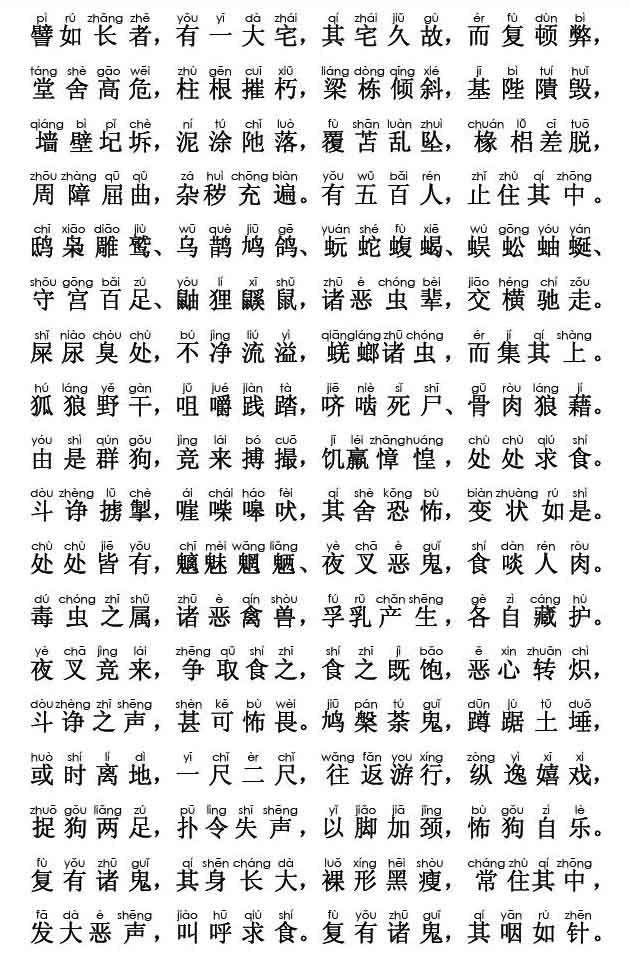 pì rú zhǎng zhě yǒu yī dà zhái qí zhái jiǔ gù ér fù dùn bì
譬如长者，有一大宅，其宅久故，而复顿弊，
táng shè gāo wēi zhù gēn cuī xiǔ liáng dòng qīng xié jī bì tuí huǐ
堂舍高危，柱根摧朽，梁栋倾斜，基陛隤毁，
qiáng bì pǐ chè ní tú chǐ luò fù shān luàn zhuì chuán lǚ cī tuō
墙壁圮坼，泥涂阤落，覆苫乱坠，椽梠差脱，
zhōu zhàng qū qū zá huì chōng biàn yǒu wǔ bǎi rén zhǐ zhù qí zhōng
周障屈曲，杂秽充遍。有五百人，止住其中。
chī xiāo diāo jiù wū què jiū gē yuán shé fù xiē wú gōng yóu yán
鸱枭雕鹫、乌鹊鸠鸽、蚖蛇蝮蝎、蜈蚣蚰蜒、
shǒu gōng bǎi zú yòu lí xī shǔ zhū è chóng bèi jiāo héng chí zǒu
守宫百足、鼬狸鼷鼠，诸恶虫辈，交横驰走。
shǐ niào chòu chù bú jìng liú yì qiāng láng zhū chóng ér jí qí shàng
屎尿臭处，不净流溢，蜣螂诸虫，而集其上。
hú láng yě gàn jǔ jué jiàn tà jiē niè sǐ shī gǔ ròu láng jí
狐狼野干，咀嚼践踏，哜啮死尸、骨肉狼藉。
yóu shì qún gǒu jìng lái bó cuō jī léi zhāng huáng chù chù qiú shí
由是群狗，竞来搏撮，饥羸慞惶，处处求食。
dòu zhèng lǔ chè ái chái háo fèi qí shè kǒng bù biàn zhuàng rú shì
斗诤掳掣，啀喍嗥吠，其舍恐怖，变状如是。
chù chù jiē yǒu chī mèi wǎng liǎng yè chā è guǐ shí dàn rén ròu
处处皆有，魑魅魍魉、夜叉恶鬼，食啖人肉。
dú chóng zhī zhǔ zhū è qín shòu fú rǔ chǎn shēng gè zì cáng hù
毒虫之属，诸恶禽兽，孚乳产生，各自藏护。
yè chā jìng lái zhēng qǔ shí zhī shí zhī jì bǎo è xīn zhuǎn chì
夜叉竞来，争取食之，食之既饱，恶心转炽，
dòu zhèng zhī shēng shèn kě bù wèi jiū pán tú guǐ dūn jù tǔ duǒ
斗诤之声，甚可怖畏。鸠槃荼鬼，蹲踞土埵，
huò shí lí dì yī chǐ èr chǐ wǎng fǎn you xíng zòng yì xī xì
或时离地，一尺二尺，往返游行，纵逸嬉戏，
zhuō gǒu liǎng zú pū lìng shī shēng yǐ jiǎo jiā jǐng bù gǒu zì lè
捉狗两足，扑令失声，以脚加颈，怖狗自乐。
fù yǒu zhū guǐ qí shēn cháng dà luǒ xíng hēi shòu cháng zhù qí zhōng
复有诸鬼，其身长大，裸形黑瘦，常住其中，
fā dà è shēng jiào hū qiú shí fù yǒu zhū guǐ qí yān rú zhēn
发大恶声，叫呼求食。复有诸鬼，其咽如针。